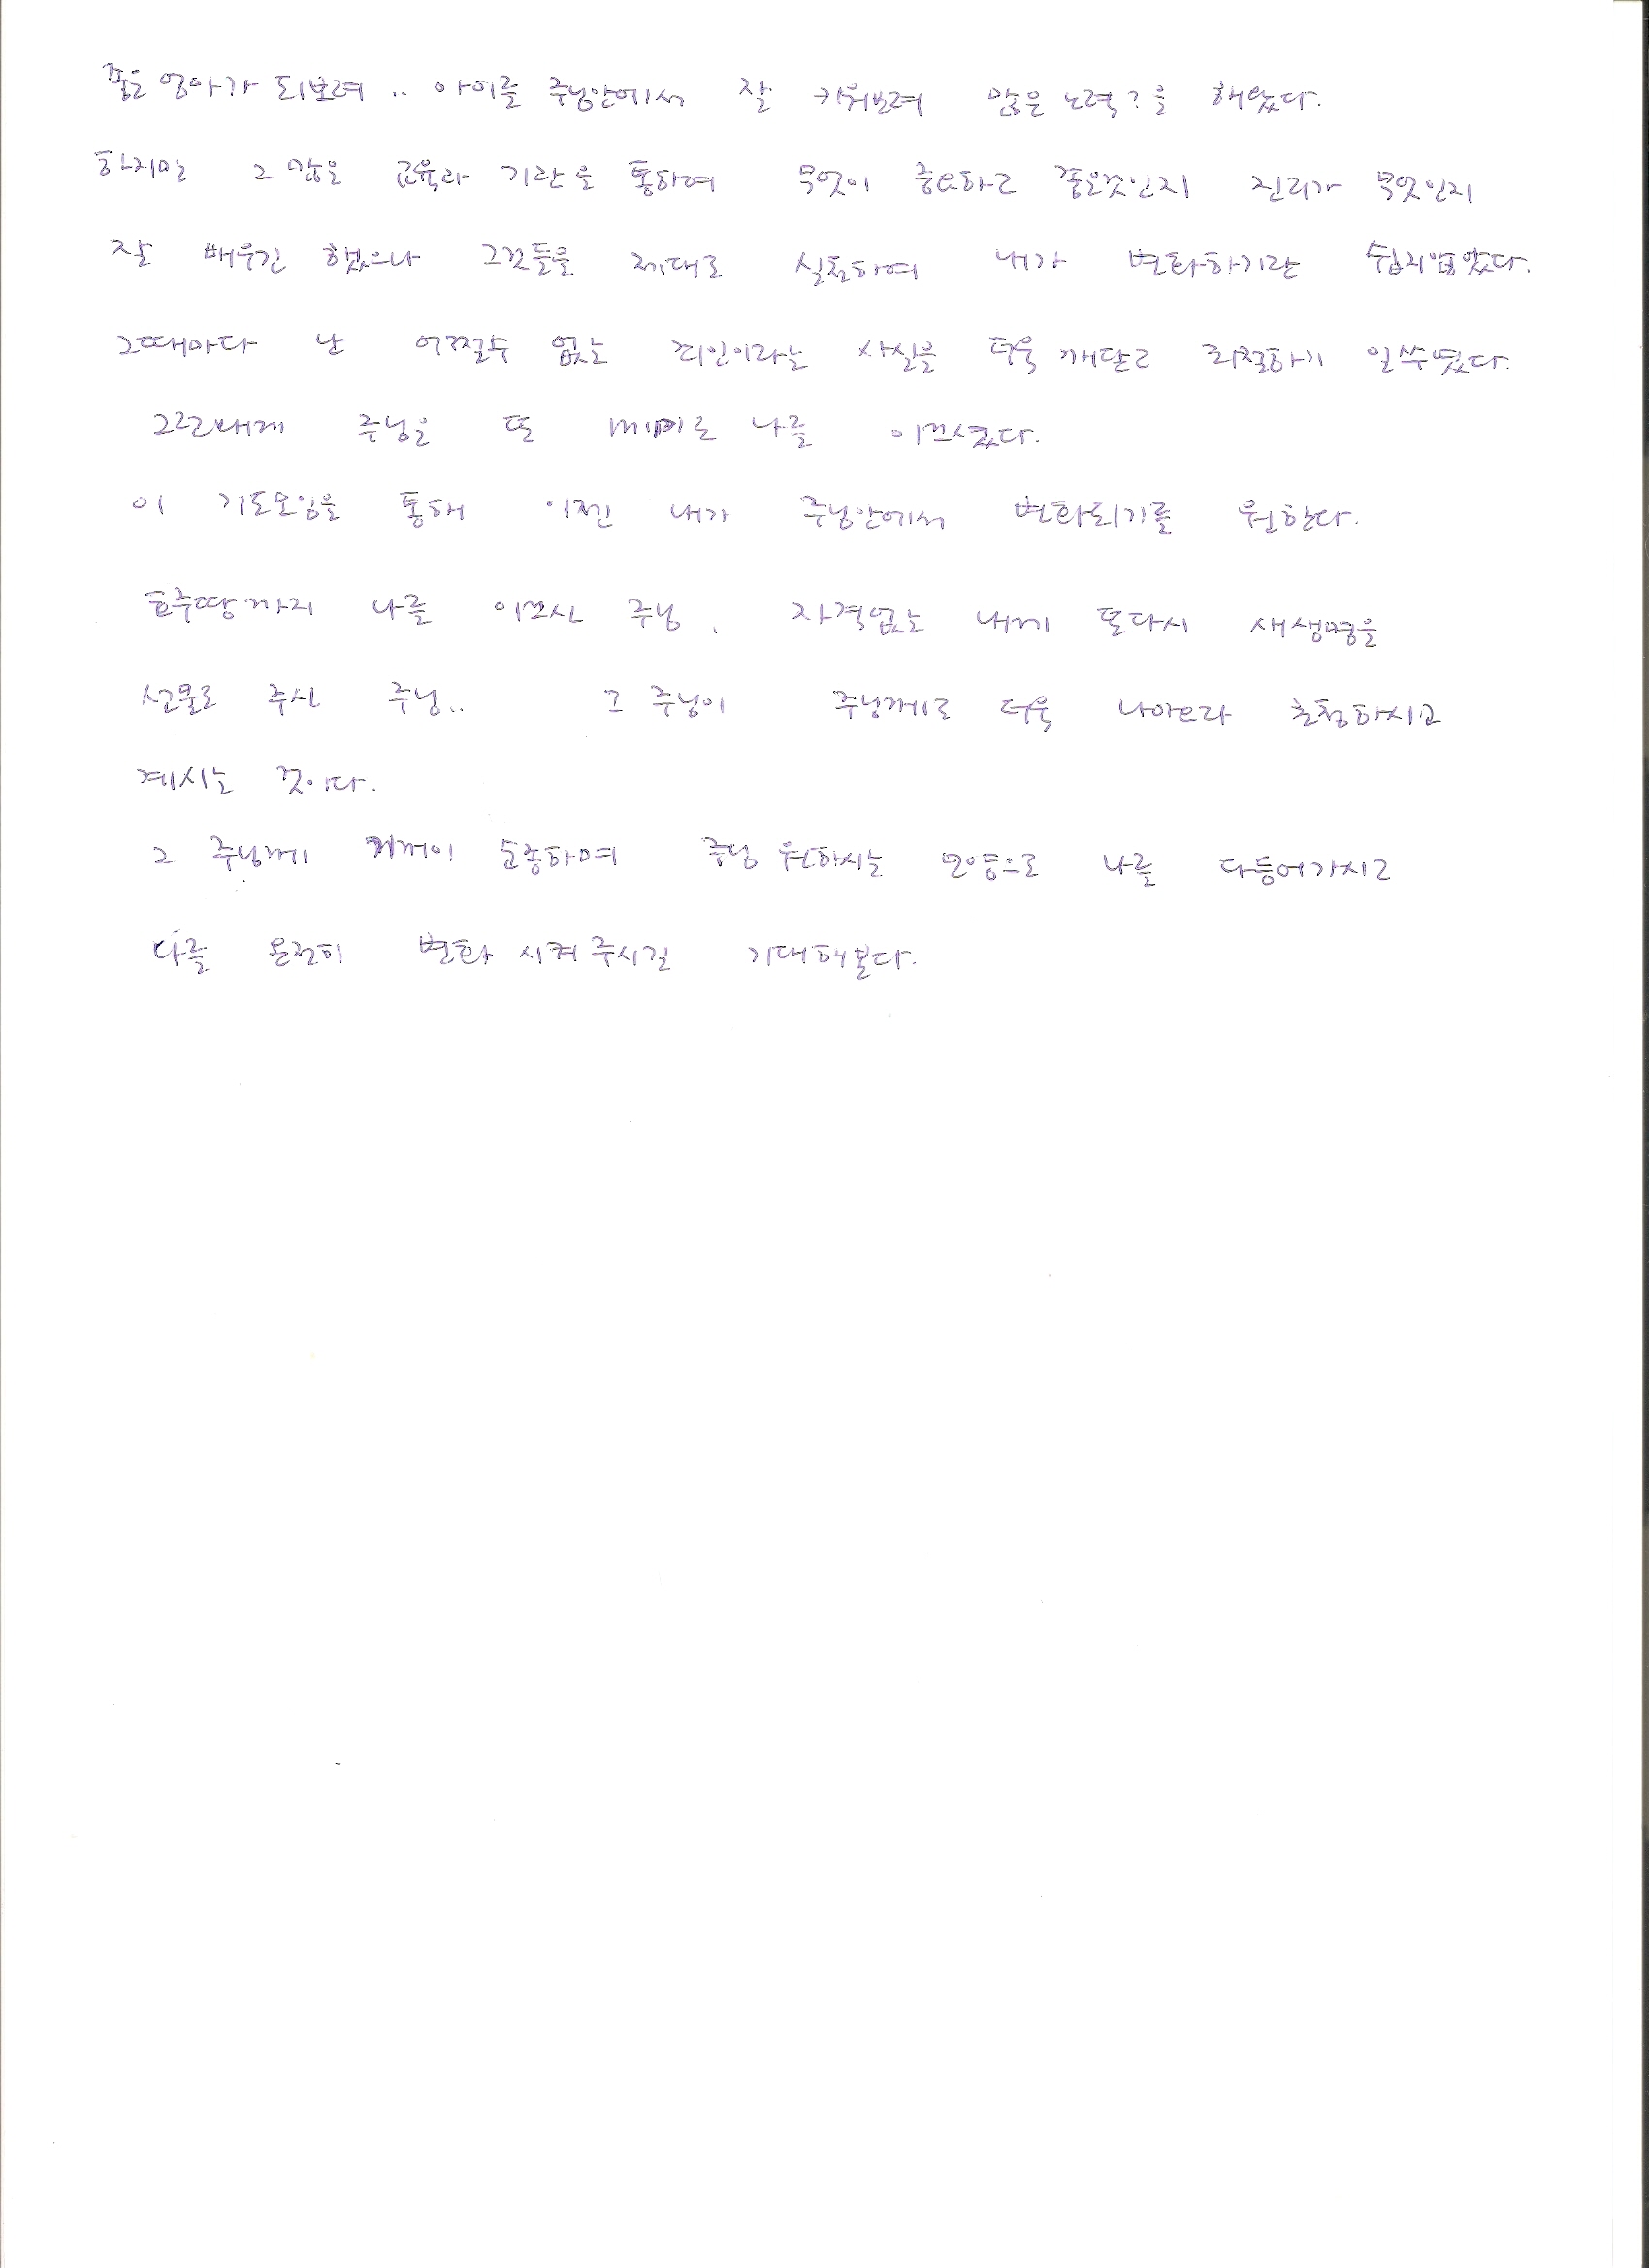 좋은 엄마가 되보려.. 아이를 주님안에서 잘 키워보려 많은 노력?을 해왔다.
하지만 그 많은 교육과 기관을 통하여 무엇이 중요하고 좋은것인지 진리가 무엇인지
잘 배우긴 했으나 그것들을 제대로 실천하여 내가 변화하기란 쉽지않았다.
그때마다 난 어쩔수 없는 죄인이라는 사실을 더욱 깨닫고 좌절하기 일쑤였다.
그런내게 주님은 또 MIP로 나를 이끄셨다.
이 기도모임을 통해 이젠 내가 주님안에서 변화되기를 원한다.
호주땅까지 나를 이끄신 주님, 자격없는 내게 또다시 새생명을
선물로 주신 주님.. 그 주님이 주님께로 더욱 나아오라 초청하시고
계시는 것이다.
그 주님께 기꺼이 순종하며 주님 원하시는 모양으로 나를 다듬어가시고
나를 온전히 변화 시켜 주시길 기대해본다.